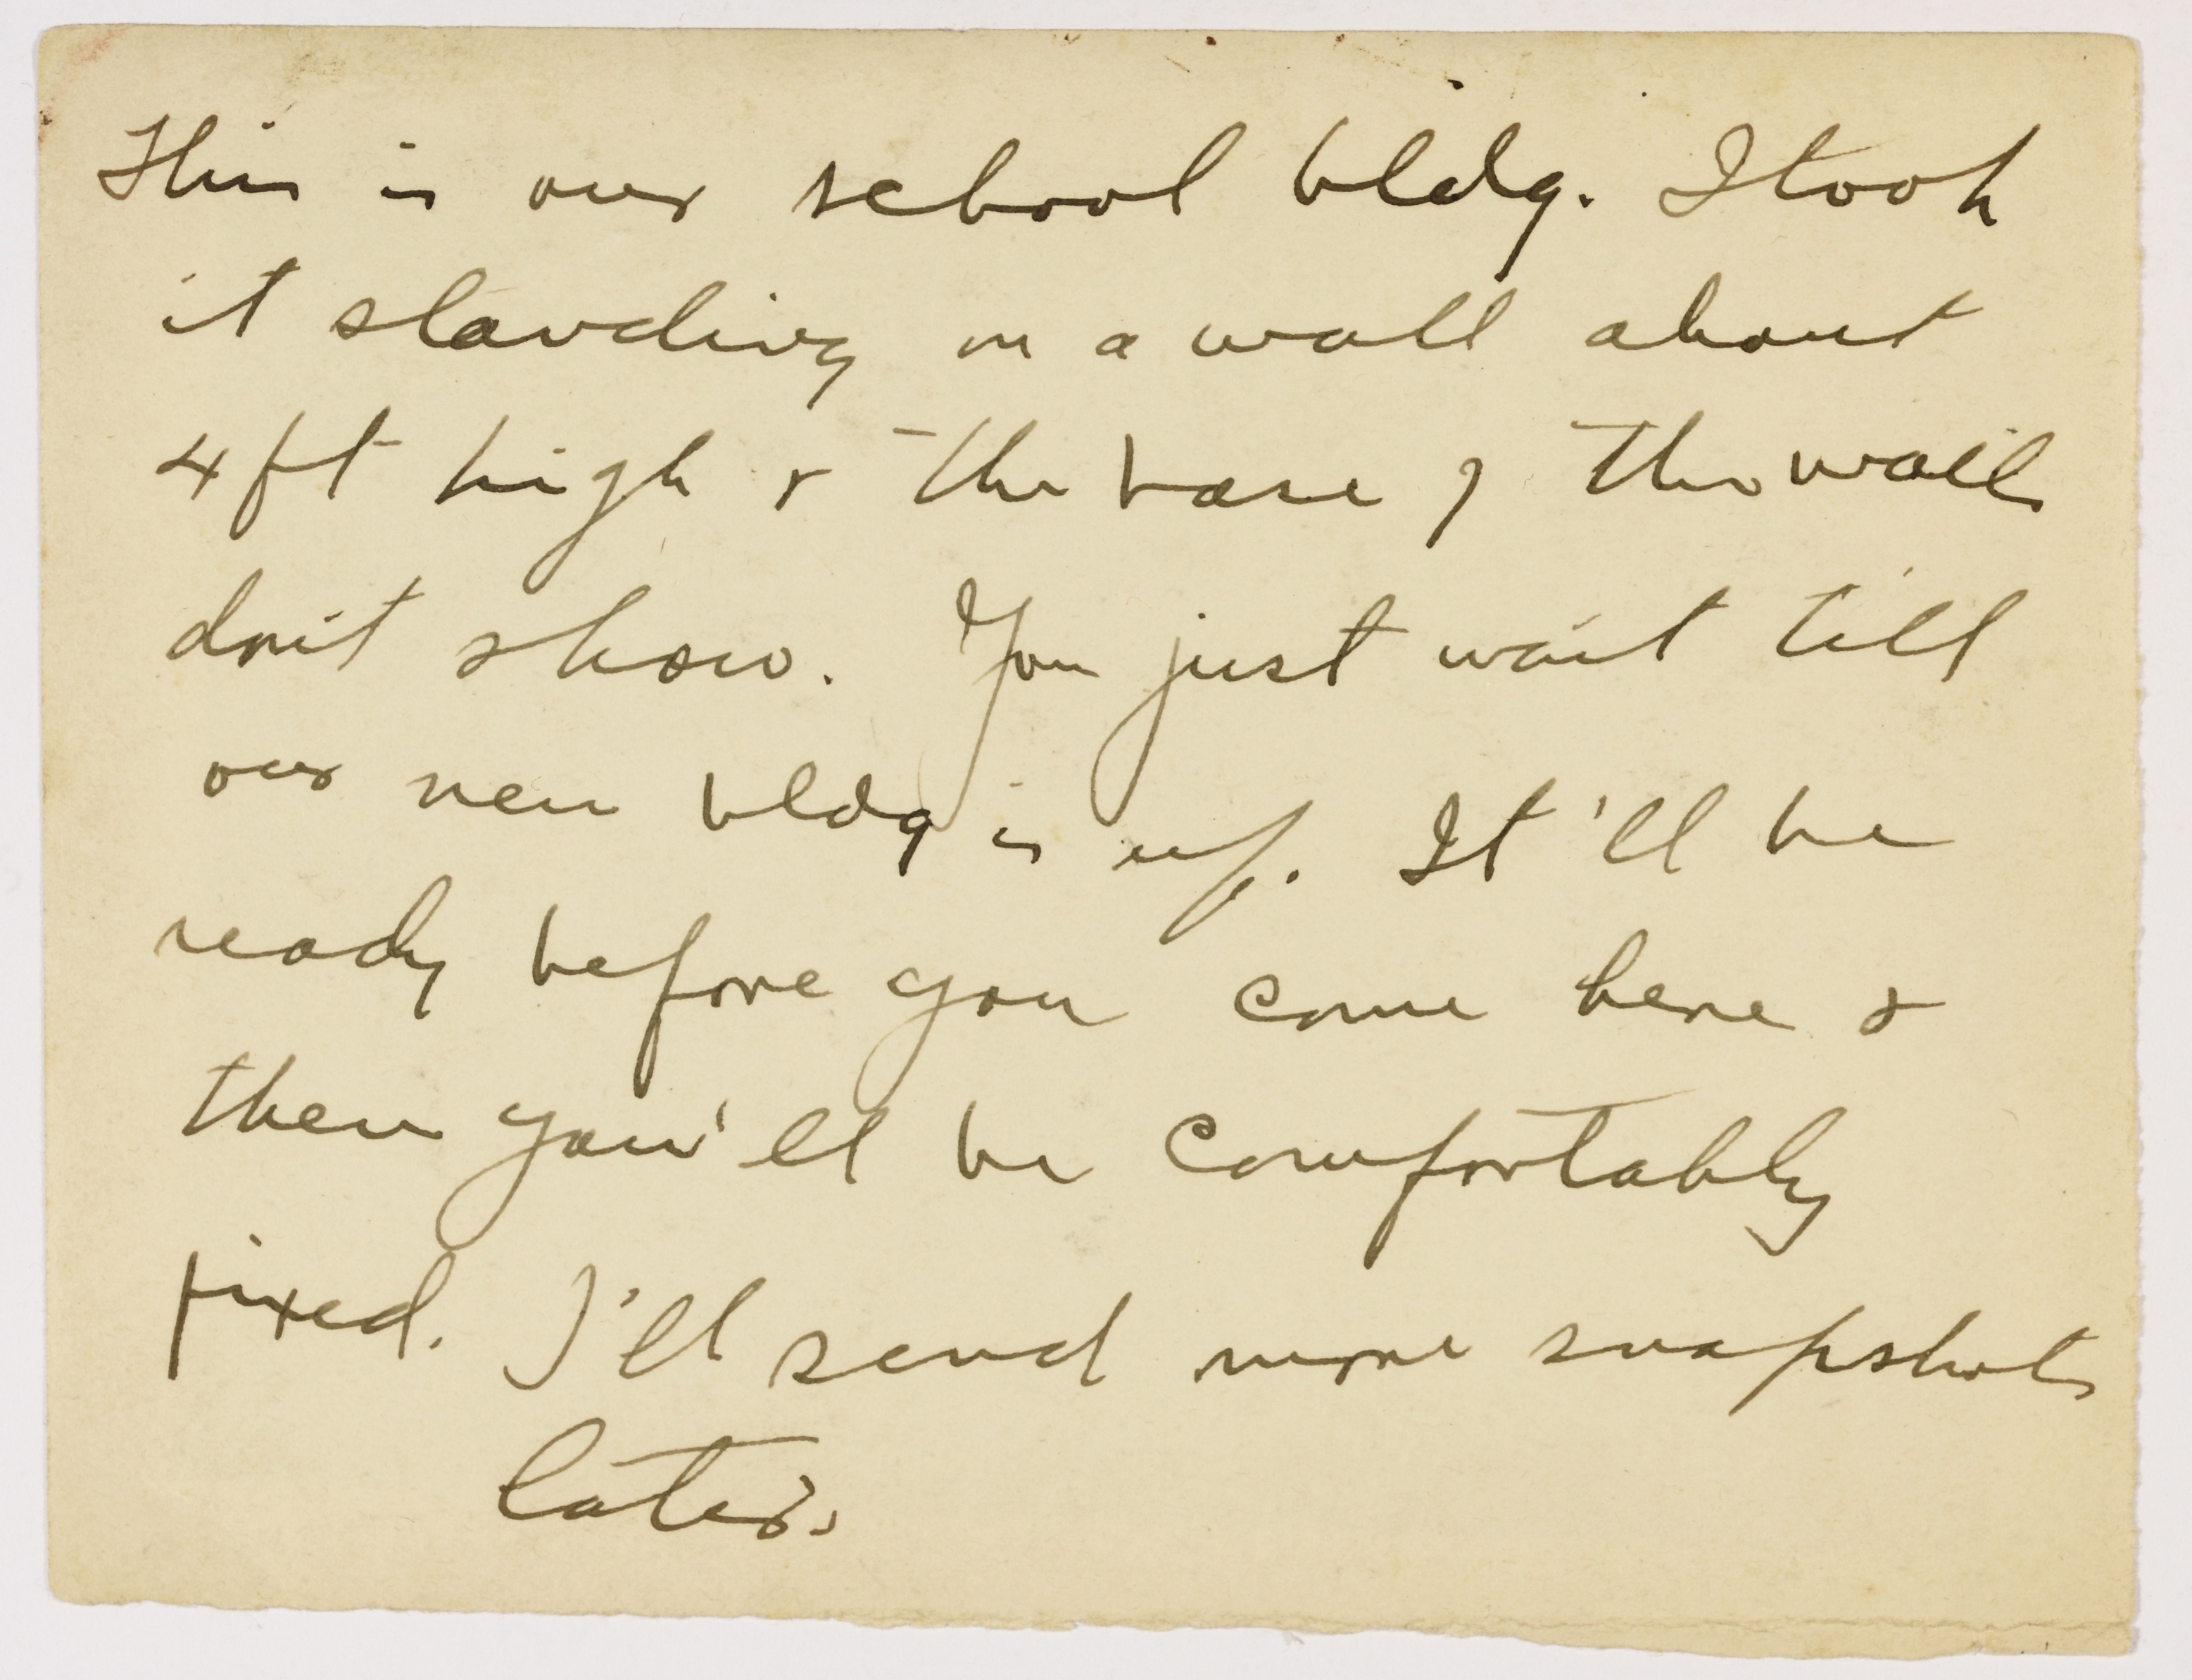 This is our school bldg. I took
it standing on a wall about
4 ft high & the base of the walls
don't show. You just wait till
our new bldg is up. It'll be
ready before you come here &
then you'll be comfortably
fixed. I'll send more snapshots
later.